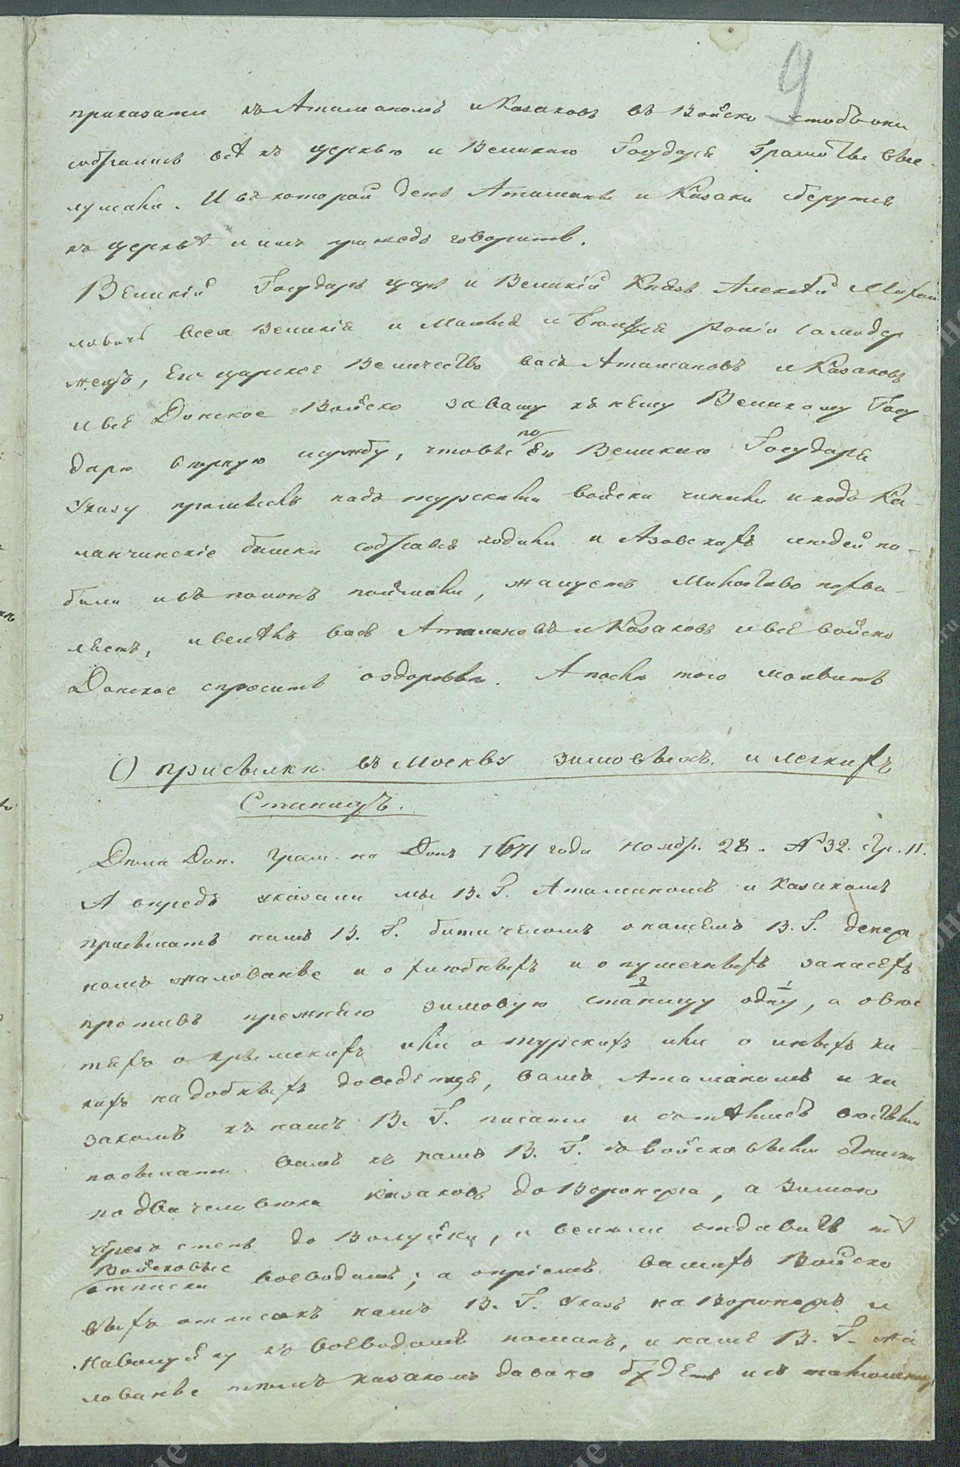 9
приказати къ Атаманомъ и Козаковъ въ Войско чтобъ они
собрались всѣ къ церкви и Великаго Государя Грамоты выс-
лушали. И въ которой день Атаманы и Козаки сберутся
къ церквѣ и имъ говорить.
Великій Государь царь и Великій Князь Алексѣй Михай
ловичъ всея Великія и Малыя и Бѣлыя Росіи Самодер
жецъ, Его царское Величество васъ Атамановъ и Козаковъ
и всё Донское Войско за вашу къ нему Великому Госу-
дарю вѣрную службу, что вы по Его Великаго Государя
Указу промыслъ надъ турскими войски чинили и подъ Ка-
ланчинскіе башни собрався ходили и Азовскихъ людей по-
били и въ полонъ поймали, жалуетъ Милостиво похва-
ляетъ, и велѣлъ васъ Атамановъ и Козаковъ и всё войско
Донское спросить о здоровьи. А послѣ того молвить
О присылки въ Москву зимовыхъ и легкихъ
Станицъ.
Дѣла Дон. Грам. на Донъ 1671 года Ноябр. 28. № 32. Стр. 11.
А впредь указали мы В. Г. Атаманомъ и Казакомъ
присылать къ намъ В. Г. бити челомъ о нашемъ В. Г. денеж
номъ жалованье и о хлѣбныхъ и о пушечныхъ запасѣхъ
противъ прежняго зимовую станицу одну, а о вѣс
тяхъ о крымскихъ или о турскихъ или о иныхъ ка-
кихъ надобныхъ доведетца, вамъ Атаманомъ и ка
закомъ къ намъ В. Г. писати и съ тѣми вѣстьми
посылати вамъ къ намъ В. Г. съ войсковыми отписки
по два человѣка казаковъ до Воронежа, а зимою
чрезъ степь до Волуйки, и велѣли отдавать тѣ
Войсковые
отписки воеводамъ; а о приемѣ вашихъ Войско
выхъ отписокъ нашъ В. Г. Указъ на Воронежъ и
на Волуйку къ воеводамъ посланъ, и наше В. Г. жа
лованье тѣмъ казакомъ давано будетъ и съ